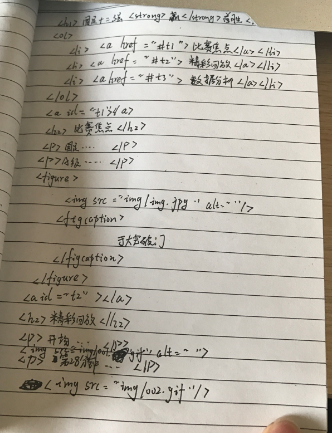 <h1> 国王十二强 <strong> </strong> 首胜 <
<ol>
<li> <a href="#t1"> 比赛焦点</a></li>
<li> <a href="#t2"> 精彩回放</a></li>
<li> <a href="#t3"> 数据分析</a></li>
</ol>
<a id="t1"></a>
<h2> 比赛焦点 </h2>
<p> 国足 .... </p>
<p> .... </p>
<figure>
<img src="img/img.jpg" alt=" "/>
<figcaption>
突破门
</figcaption>
</figure>
<a id="t2"></a>
<h2> 精彩回放 </h2>
<p> 开场 ... </p>
<img src= gif" alt=" ">
<p> 第28分钟 ... </p>
<img src="img/002.gif"/>